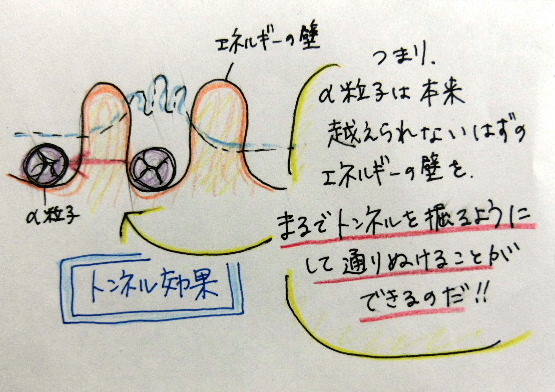 エネルギーの壁
α粒子
トンネル効果
つまり、
α粒子は本来
越えられないはずの
エネルギーの壁を、
まるでトンネルを掘るように
して通りぬけることが
できるのだ!!